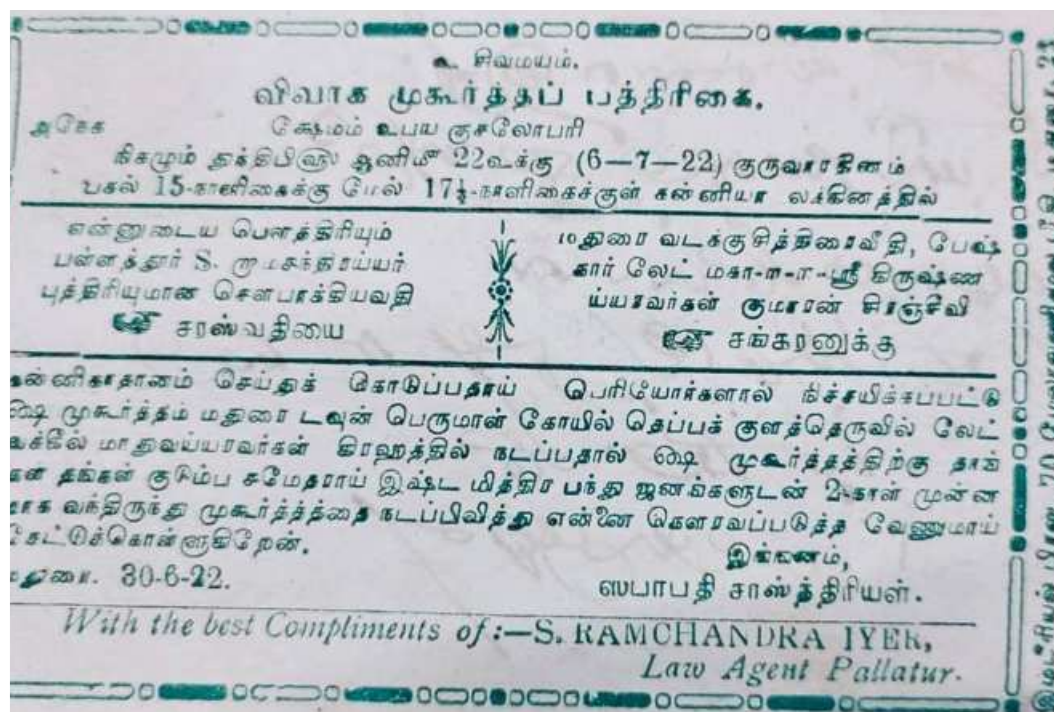 உ சிவமயம்.
விவாக முகூர்த்தப் பத்திரிகை.
அநேக க்ஷேமம் உபய குசலோபரி
நிகழும் துந்துபிஹு ஆனிமீ 22உக்கு (6—7—22) குருவாரதினம்
பகல் 15-நாளிகைக்கு மேல் 17½-நாளிகைக்குள் கன்னியா லக்கினத்தில்
என்னுடைய பௌத்திரியும்
பள்ளத்தூர் S. ராமசந்திரய்யர்
புத்திரியுமான சௌபாக்கியவதி
சரஸ்வதியை
மதுரை வடக்குசித்திரைவீதி, பேஷ்
கார் லேட் மகா-ா-ா-ஸ்ரீ கிருஷ்ண
ய்யரவர்கள் குமாரன் சிரஞ்சீவி
சங்கரனுக்கு
கன்னிகாதானம் செய்துக் கொடுப்பதாய் பெரியோர்களால் நிச்சயிக்கப்பட்டு
ஷை முகூர்த்தம் மதுரை டவுன் பெருமாள் கோயில் தெப்பக் குளத்தெருவில் லேட்
வக்கீல் மாதுவய்யரவர்கள் கிரஹத்தில் நடப்பதால் ஷை முகூர்த்தத்திற்கு தாங்
கள் தங்கள் குடும்ப சமேதராய் இஷ்ட மித்திர பந்து ஜனங்களுடன் 2-நாள் முன்ன
தாக வந்திருந்து முகூர்த்த்தை நடப்பிவித்து என்னை கௌரவப்படுத்த வேணுமாய்
கேட்டுக்கொள்ளுகிறேன்.
இங்கனம்,
மதுரை. 30-6-22.
ஸபாபதி சாஸ்த்திரியள்.
With the best Compliments of:—S. RAMCHANDRA IYER,
Law Agent Pallatur.